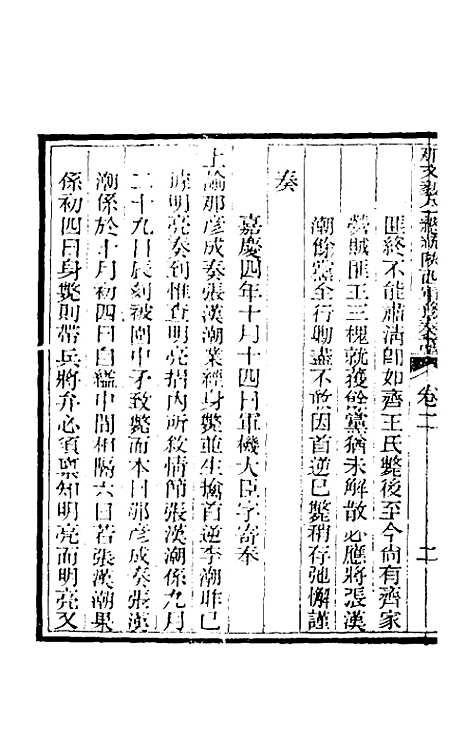 匪終不能肅清卽如齊王氏斃後至今尚有齊家
營賊匪王三槐就獲餘黨猶未解散必應將張漢
潮餘黨全行勦盡不敢因首逆已斃稍存弛懈謹
奏
嘉慶四年十月十四日軍機大臣字寄奉
上諭那彥成奏張漢潮業經身斃並生擒首逆李潮昨已
據明亮奏到惟查明亮摺內所敘情節張漢潮係九月
二十九日辰刻被圍中矛致斃而本日那彥成奏張漢
潮係於十月初四日自縊中間相隔六日若張漢潮果
係初四日身斃則帶兵將弁必須稟知明亮而明亮又
那文毅公
卷二
二